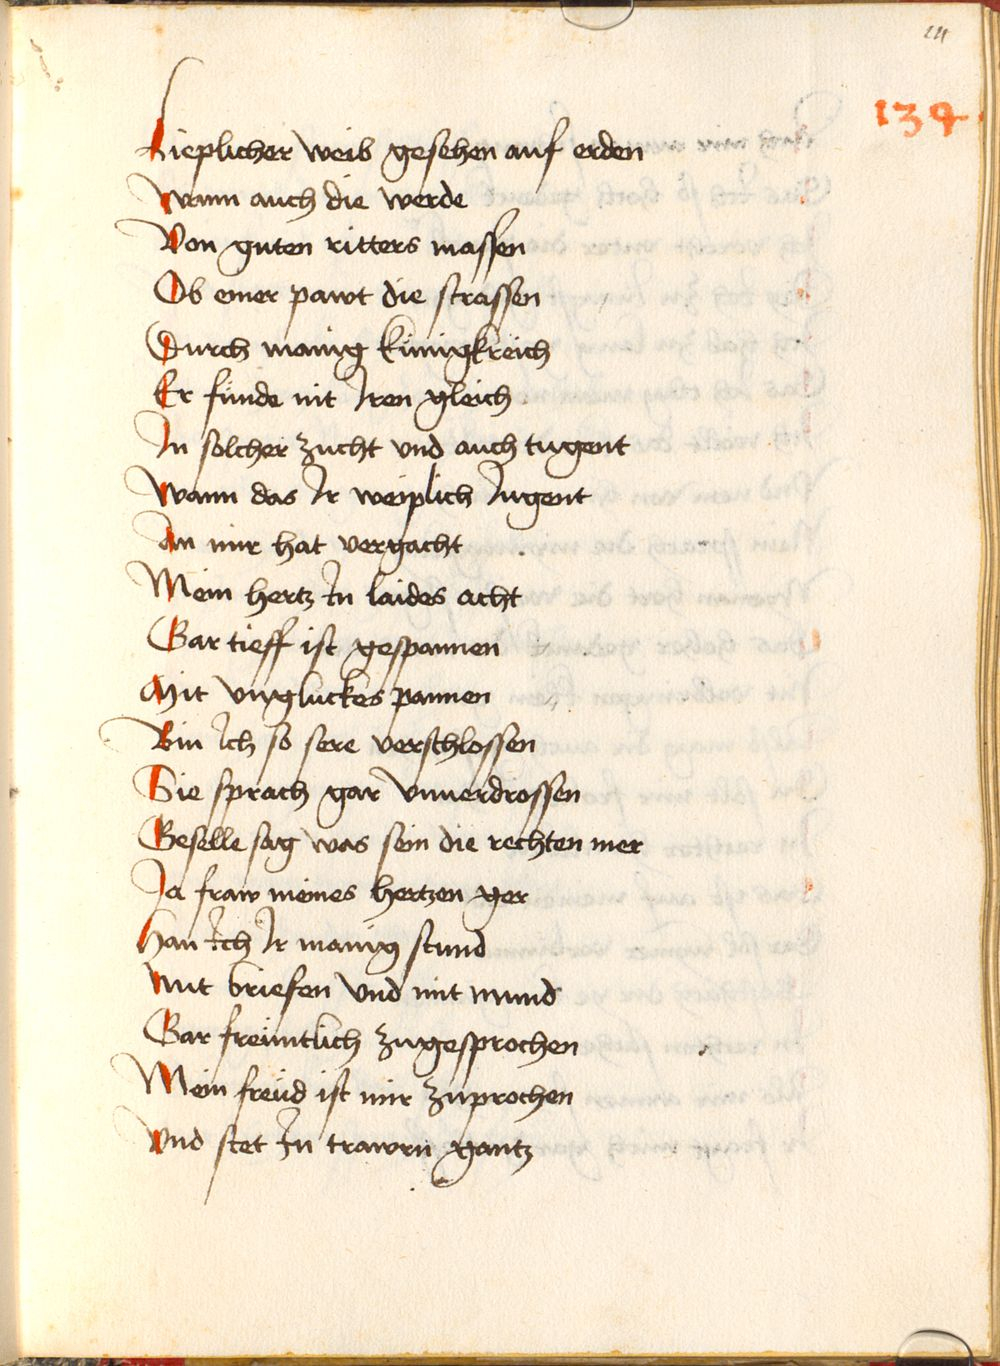 134
Lieplicher weib gesehen auf erden
Wann auch die werde
Von guten ritters massen
Ob einer pawt die strassen
Durch manig kunigkreich
Er fünde nit Iren gleich
In solcher zucht vnd auch tugent
Wann das Ir weiplich Jugent
An mir hat vergacht
Mein hertz In laides acht
Gar tieff ist gespannen
Mit vngluckes pannen
Bin Ich so sere verschlossen
Sie sprach gar vnuerdrossen
Geselle sag was sein die rechten mer
Ja fraw meines hertzen ger
Han Ich Ir manig stund
Mit briefen vnd mit mund
Gar freuntlich zugesprochen
Mein freüd ist mir zuprochen
Vnd stet In trawrn gantz